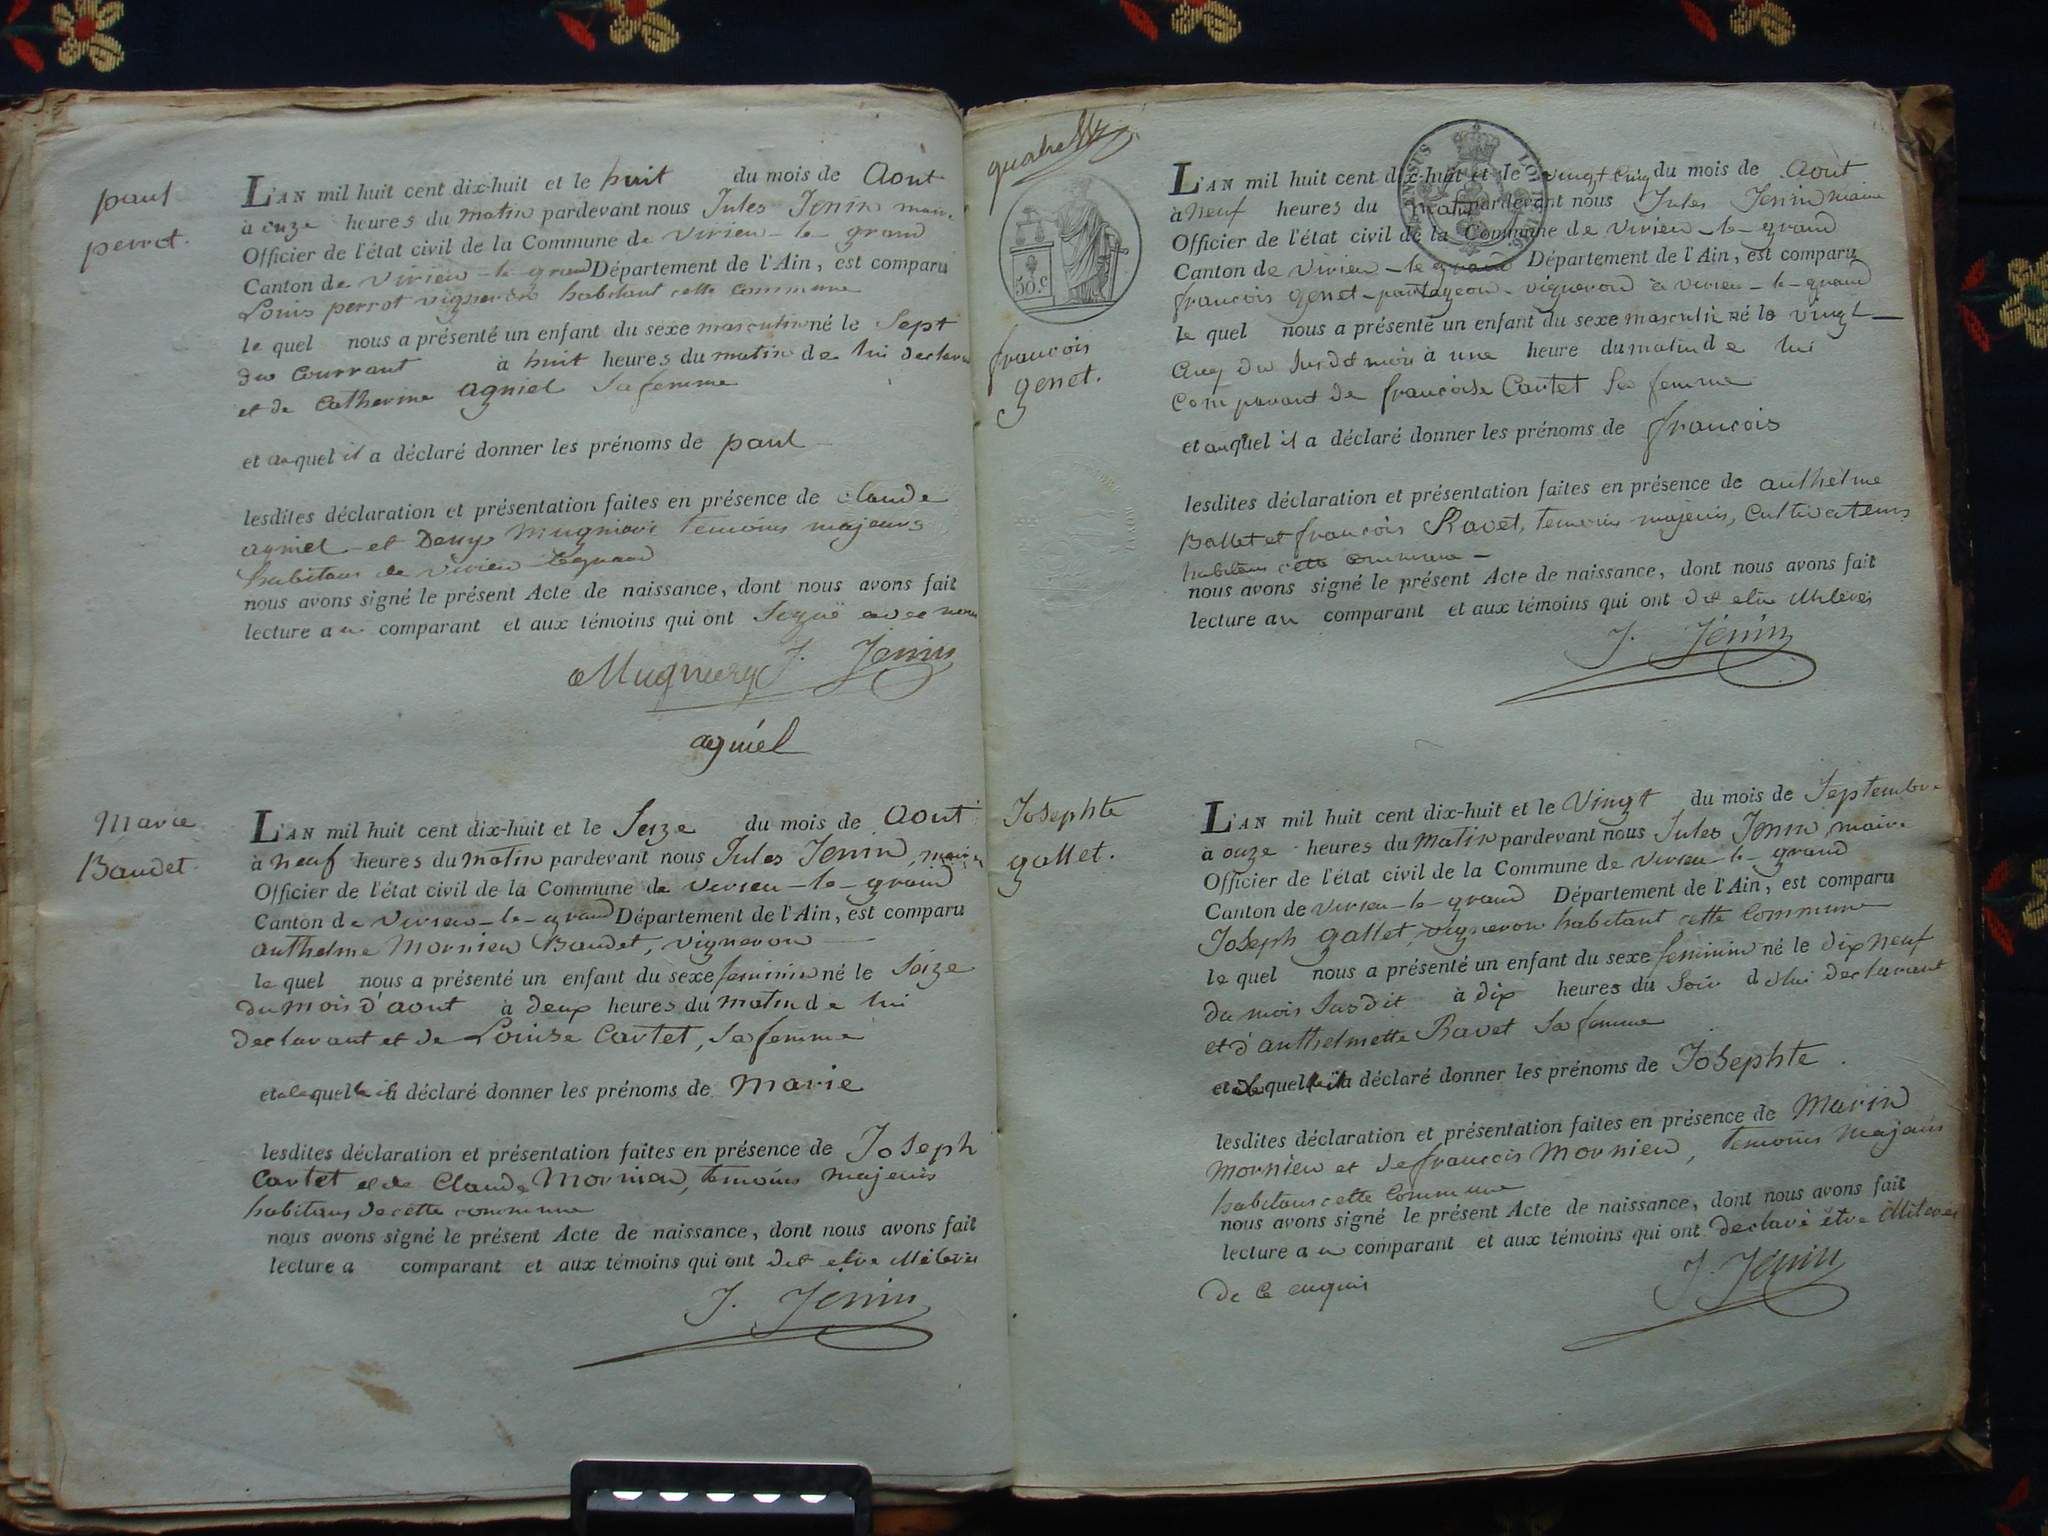 paul
perrot.
L'AN mil huit cent dix-huit et le huit du mois de Aout
à onze heures du matin pardevant nous Jules Jenin maire
Officier de l'état civil de la Commune de virieu-le-grand
Canton de virieu-le-grand Département de l'Ain, est comparu
Louis perrot vigneron habitant cette commune
le quel nous a présenté un enfant du sexe masculin né le Sept
du Courrant à huit heures du matin de lui declarant
et de Catherine agniel Sa femme
et auquel il a déclaré donner les prénoms de paul
lesdites déclaration et présentation faites en présence de claude
agniel et Deny temoins majeurs
habitans de virieu legrand
nous avons signé le présent Acte de naissance, dont nous avons fait
lecture au comparant et aux témoins qui ont Signé avec nous
Mugniery J. Jenin
agniel
Marie
Baudet
L'AN mil huit cent dix-huit et le Seize du mois de Aout
à neuf heures du matin pardevant nous Jules Jenin, maire
Officier de l'état civil de la Commune de virieu-le-grand
Canton de virieu-le-grand Département de l'Ain, est comparu
anthelme Mornieu Baudet, vigneron
le quel nous a présenté un enfant du sexe feminin né le Seize
du mois d'aout à deux heures du matin de lui
declarant et de Louise Cartet, Sa femme
et alaquelle il a déclaré donner les prénoms de Marie
lesdites déclaration et présentation faites en présence de Joseph
Cartet et de Claude Mornieu, temoins majeurs
habitans de cette commune
nous avons signé le présent Acte de naissance, dont nous avons fait
lecture a comparant et aux témoins qui ont dit etre illiterés
J. Jenin
quatre
50.c
françois
genet.
L'AN mil huit cent dix-huit et le vingt cinq du mois de Aout
à neuf heures du matin pardevant nous Jules Jenin maire
Officier de l'état civil de la Commune de virieu-le-grand
Canton de virieu-le-grand Département de l'Ain, est comparu
françois genet-pantageon vigneron à virieu-le-grand
le quel nous a présenté un enfant du sexe masculin né le vingt
cinq du Susdit mois à une heure du matin de lui
Comparant de françoise Cartet Sa femme
et auquel il a déclaré donner les prénoms de françois
lesdites déclaration et présentation faites en présence de anthelme
Ballet et françois Ravet, temoins majeurs, Cultivateurs
habitans cette commune
nous avons signé le présent Acte de naissance, dont nous avons fait
lecture au comparant et aux témoins qui ont dit etre illiterés
J. Jenin
Josephte
gallet.
L'AN mil huit cent dix-huit et le Vingt du mois de Septembre
à onze heures du matin pardevant nous Jules Jenin, maire
Officier de l'état civil de la Commune de virieu-le-grand
Canton de virieu-le-grand Département de l'Ain, est comparu
Joseph gallet, vigneron habitant cette Commune
le quel nous a présenté un enfant du sexe feminin né le dix neuf
du mois Susdit à dix heures du Soir de lui declarant
et d'anthelmette Ravet Sa femme
et alaquelle il a déclaré donner les prénoms de Josephte.
lesdites déclaration et présentation faites en présence de Marin
Mornieu et de françois Mornieu, temoins Majeurs
habitans cette Commune
nous avons signé le présent Acte de naissance, dont nous avons fait
lecture au comparant et aux témoins qui ont declaré être illiterés
de ce enquis
J. Jenin